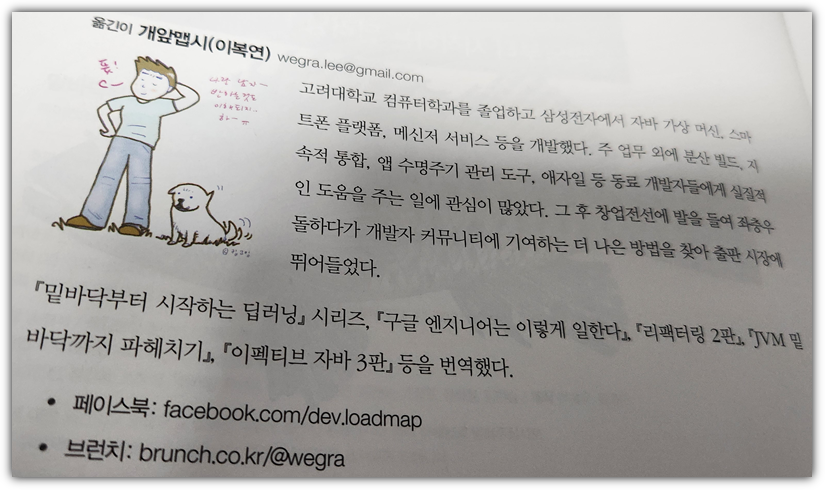 옮긴이 개앞맵시(이복연) wegra.lee@gmail.com
고려대학교 컴퓨터학과를 졸업하고 삼성전자에서 자바 가상 머신, 스마
트폰 플랫폼, 메신저 서비스 등을 개발했다. 주 업무 외에 분산 빌드, 지
속적 통합, 앱 수명주기 관리 도구, 애자일 등 동료 개발자들에게 실질적
인 도움을 주는 일에 관심이 많았다. 그 후 창업전선에 발을 들여 좌충우
돌하다가 개발자 커뮤니티에 기여하는 더 나은 방법을 찾아 출판 시장에
뛰어들었다.
『밑바닥부터 시작하는 딥러닝』 시리즈, 『구글 엔지니어는 이렇게 일한다』, 『리팩터링 2판』, 『JVM 밑
바닥까지 파헤치기』, 『이펙티브 자바 3판』 등을 번역했다.
• 페이스북: facebook.com/dev.loadmap
• 브런치: brunch.co.kr/@wegra